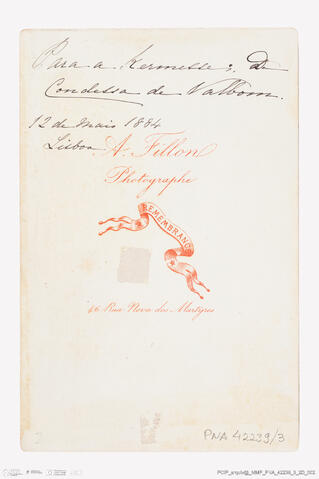 Para a Kermesse: Da
Condessa de Valbom.
12 de Maio 1884
Lisboa
A. Fillon
Photographe
REMEMBRANCE
46 Rua Nova dos Martyres
PNA 42239/3